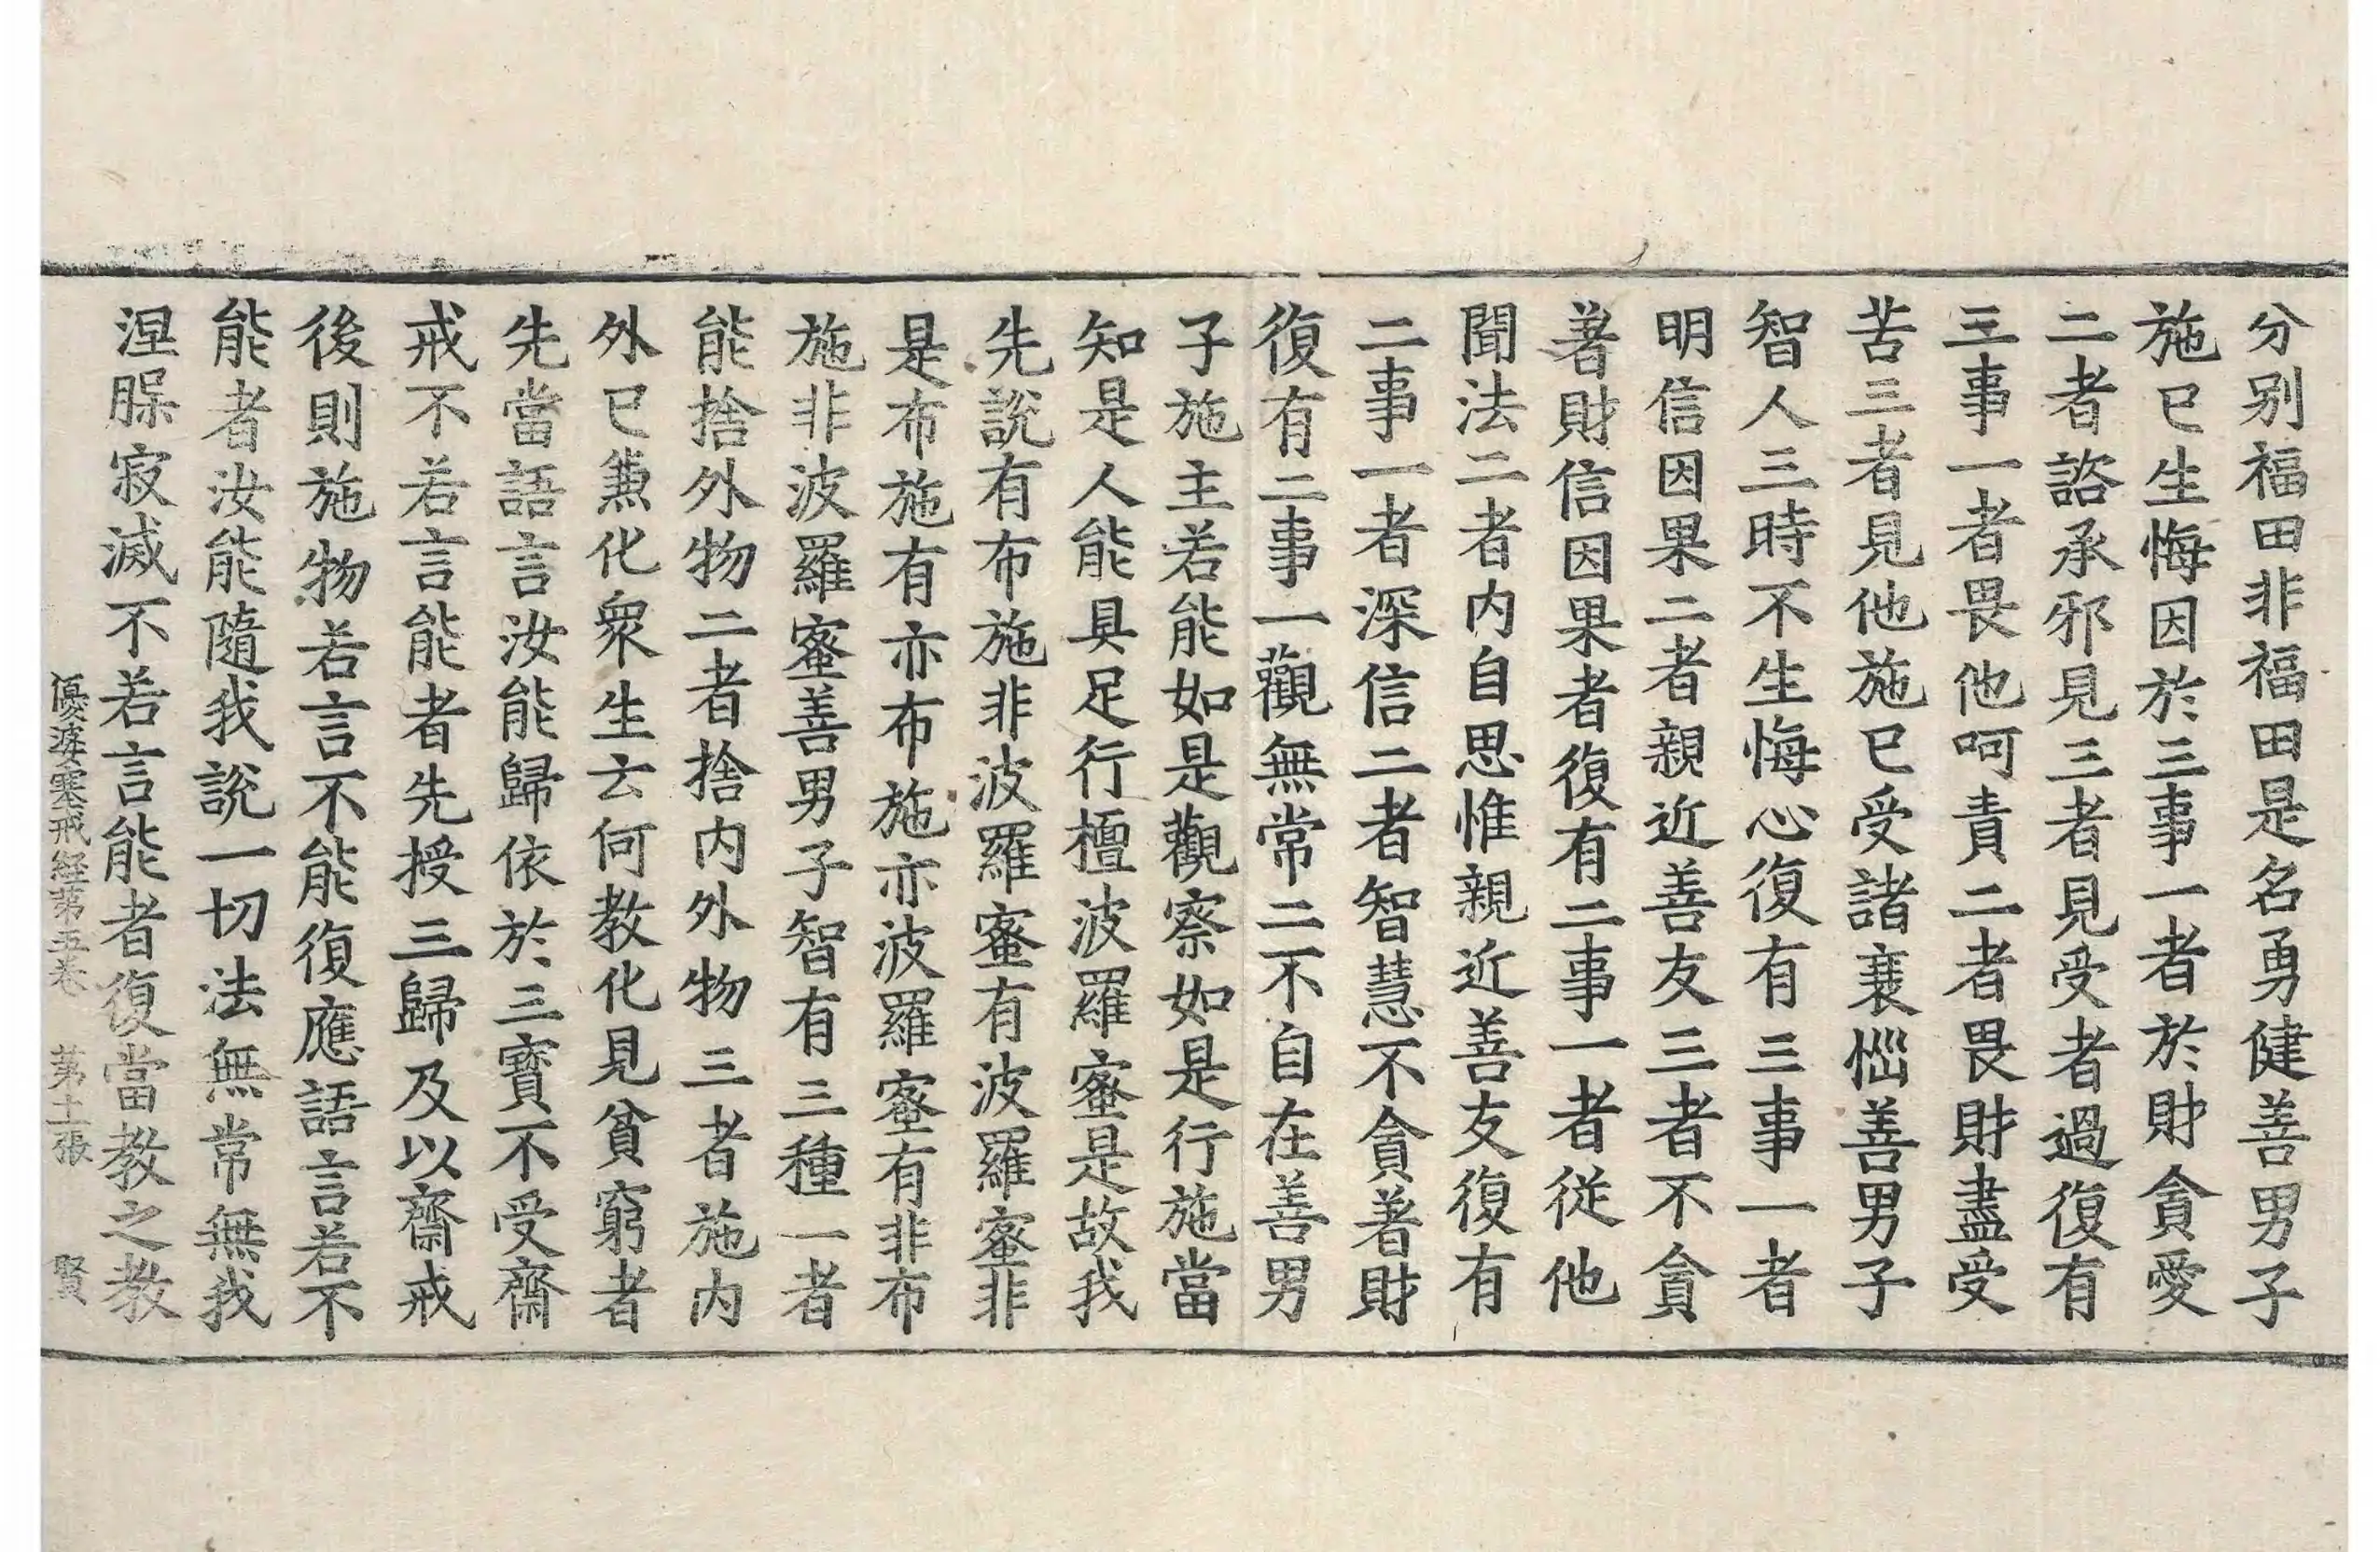 分别福田非福田是名勇健善男子
施已生悔因於三事一者於財貪愛
二者諮承邪見三者見受者過復有
三事一者畏他呵責二者畏財盡受
苦三者見他施已受諸衰惱善男子
智人三時不生悔心復有三事一者
明信因果二者親近善友三者不貪
著財信因果者復有二事一者従他
聞法二者内自思惟親近善友復有
二事一者深信二者智慧不貪著財
復有二事一觀無常二不自在善男
子施主若能如是觀察如是行施當
知是人能具足行檀波羅蜜是故我
先說有布施非波羅蜜有波羅蜜非
是布施有亦布施亦波羅蜜有非布
施非波羅蜜善男子智有三種一者
能捨外物二者捨内外物三者施内
外已兼化衆生云何教化見貧窮者
先當語言汝能歸依於三寶不受齋
戒不若言能者先授三歸及以齋戒
後則施物若言不能復應語言若不
能者汝能隨我說一切法無常無我
涅槃寂滅不若言能者復當教之教
優婆塞戒経苐五巻 苐十二張 賢